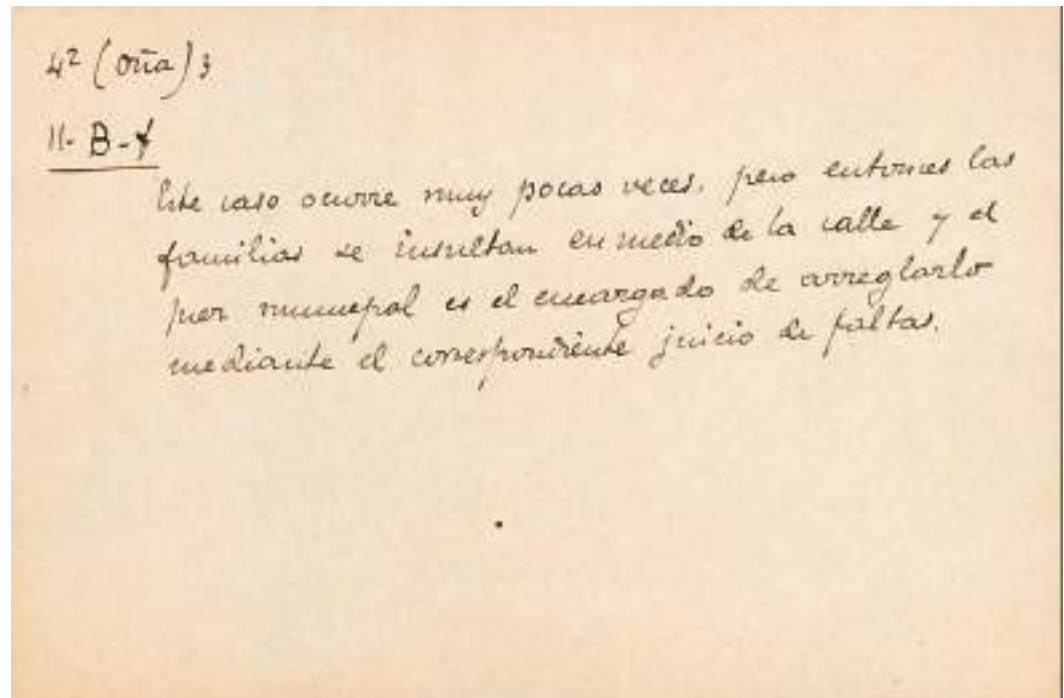 42 (Oña) 3
II- B-f
Este caso ocurre muy pocas veces, pero entonces las
familias se insultan en medio de la calle y el
juez municipal es el encargado de arreglarlo
mediante el correspondiente juicio de faltas.